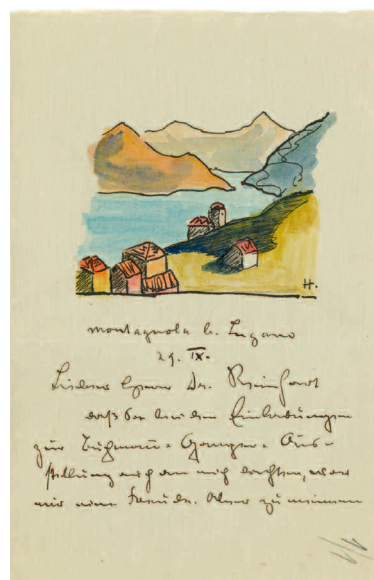 H.
Montagnola b. Lugano
29. IX.
Lieber Herr Dr. Reinhart
daß Sie bei den Einladungen
zur Aus-
stellung auch an mich dachten, war
mir eine Freude. Aber zu meinem